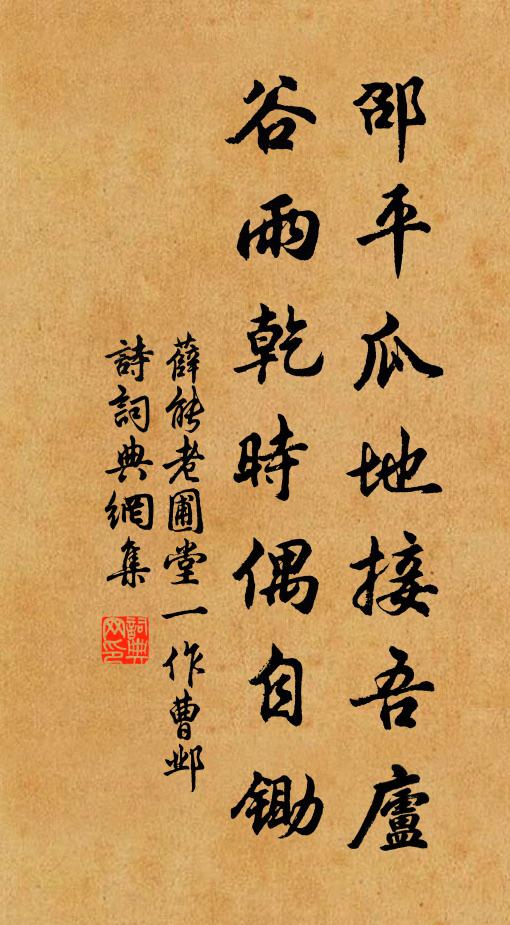 邵平瓜地接吾廬
谷雨乾時偶自鋤
薛能老圃堂一作曹邺
詩詞典網集
詞典網印